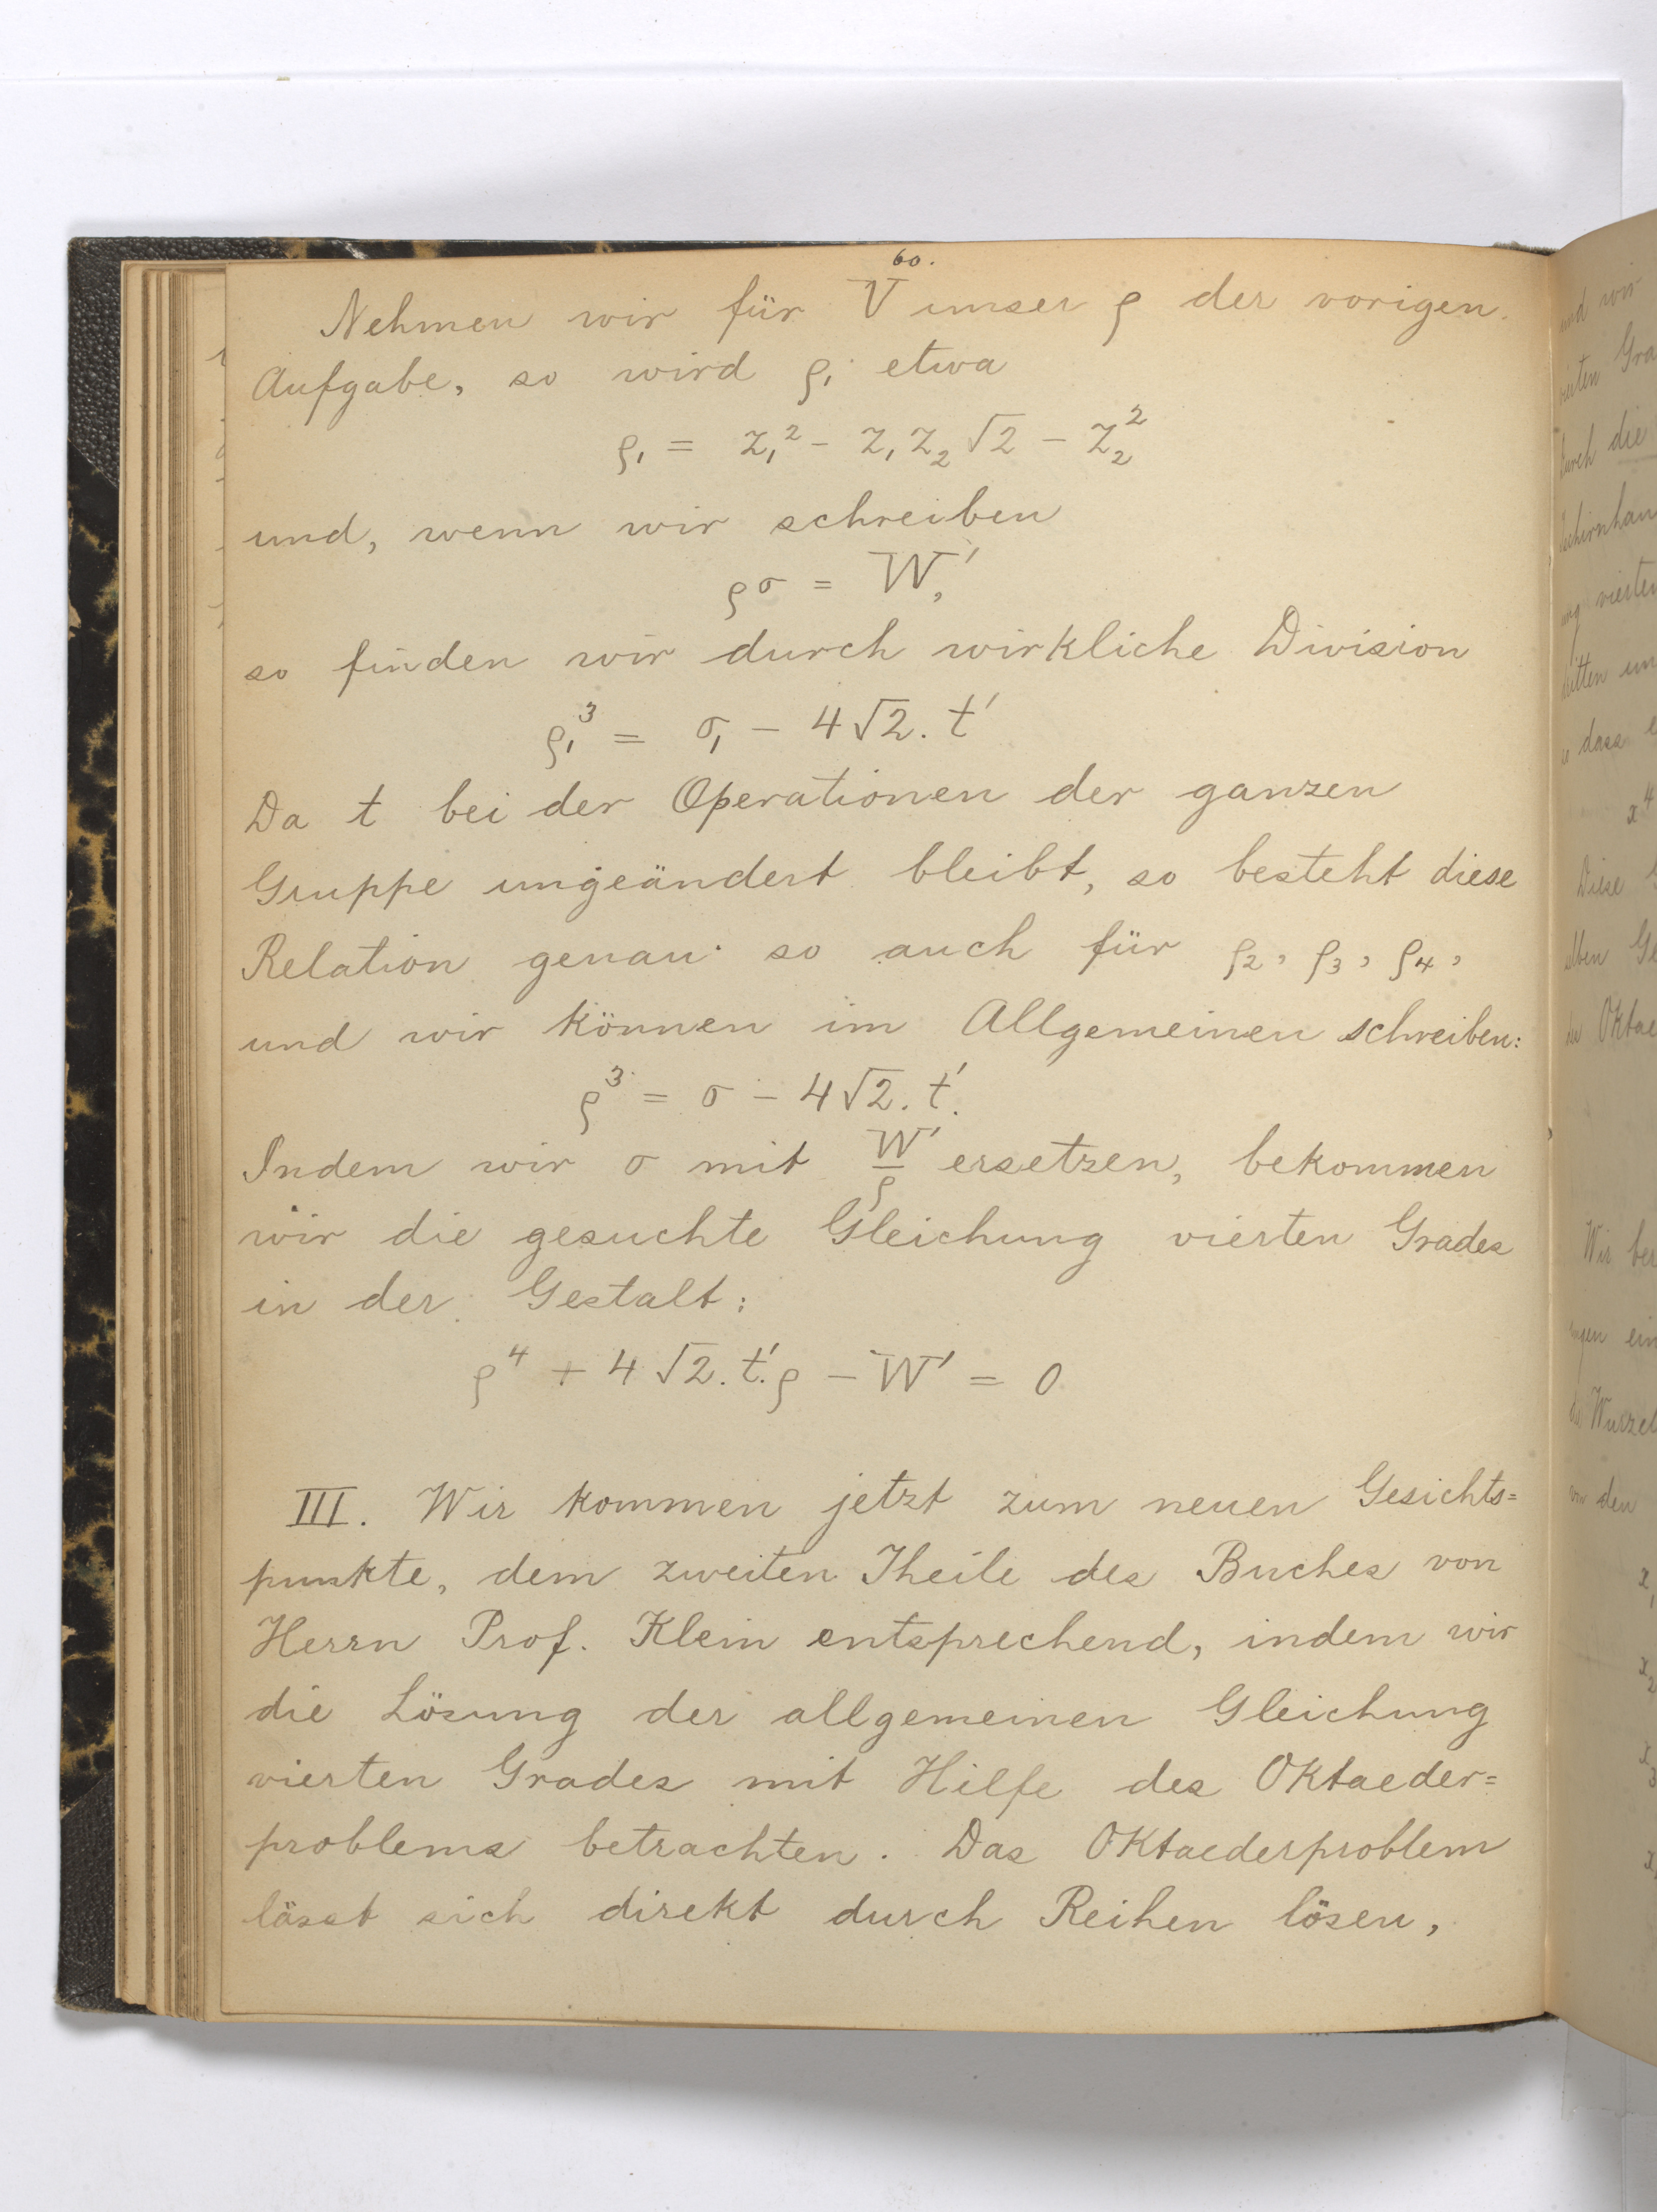 60.
Nehmen wir für V unser ρ der vorigen
Aufgabe, so wird ρ₁ etwa
ρ₁ = z₁² - z₁ z₂ √2 - z₂²
und, wenn wir schreiben
ρσ = W',
so finden wir durch wirkliche Division
ρ₁³ = σ₁ - 4√2. t'
Da t bei der Operationen der ganzen
Gruppe ungeändert bleibt, so besteht diese
Relation genau so auch für ρ₂, ρ₃, ρ₄,
und wir können im Allgemeinen schreiben:
ρ³ = σ - 4√2. t'.
Indem wir σ mit W'/ρ ersetzen, bekommen
wir die gesuchte Gleichung vierten Grades
in der Gestalt:
ρ⁴ + 4√2. t'. ρ - W' = 0
III. Wir kommen jetzt zum neuen Gesichts=
punkte, dem zweiten Theile des Buches von
Herrn Prof. Klein entsprechend, indem wir
die Lösung der allgemeinen Gleichung
vierten Grades mit Hilfe des Oktaeder=
problems betrachten. Das Oktaederproblem
lässt sich direkt durch Reihen lösen,